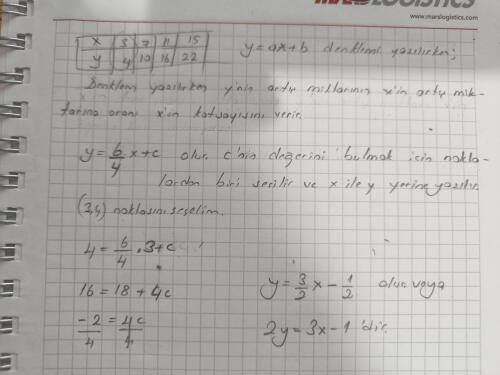 MARSLOGISTICS
www.marslogistics.com
x 3 7 11 15
y 4 10 16 22
y=ax+b denklemi yazılırken;
Denklem yazılırken y'nin artış miktarının x'in artış mik-
tarına oranı x'in katsayısını verir.
y=6/4x+c olur. c'nin değerini bulmak için nokta-
lardan biri seçilir ve x ile y yerine yazılır.
(3,4) noktasını seçelim.
4=6/4.3+c
16=18+4c
-2/4=4c/4
y=3/2x-1/2 olur veya
2y=3x-1'dir.